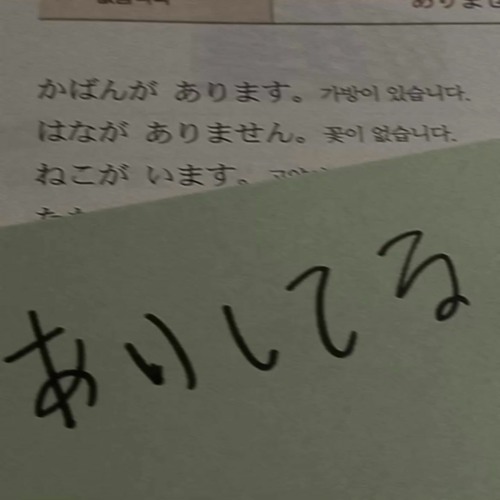 かばんが あります。 가방이 있습니다.
はなが ありません。 꽃이 없습니다.
ねこが います。
あいしてる